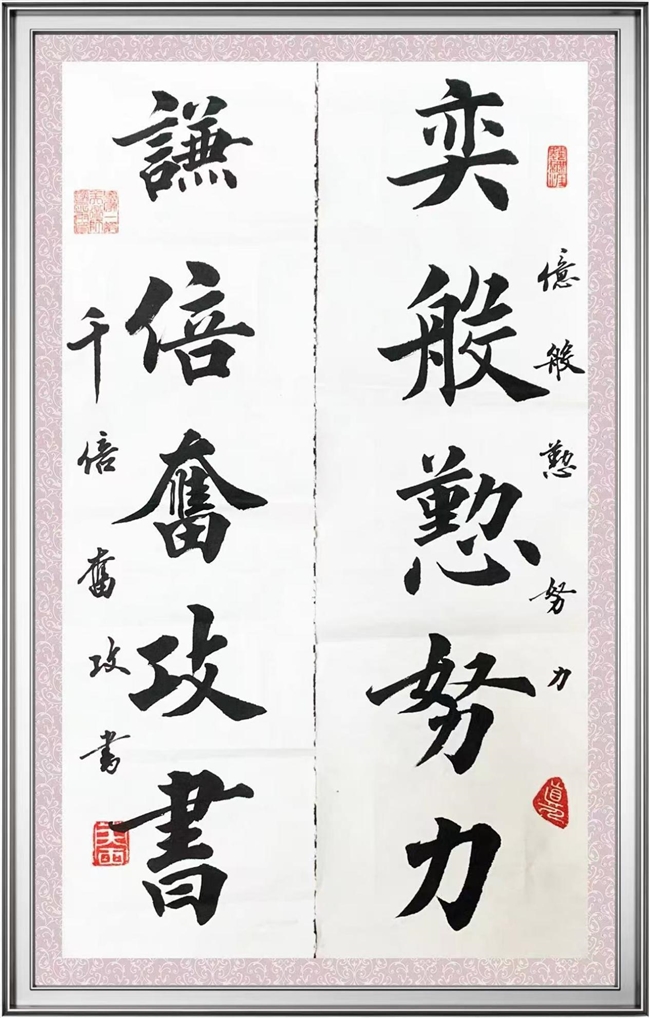 億般懃努力
奕般懃努力
謙倍奮攻書
千倍奮攻書